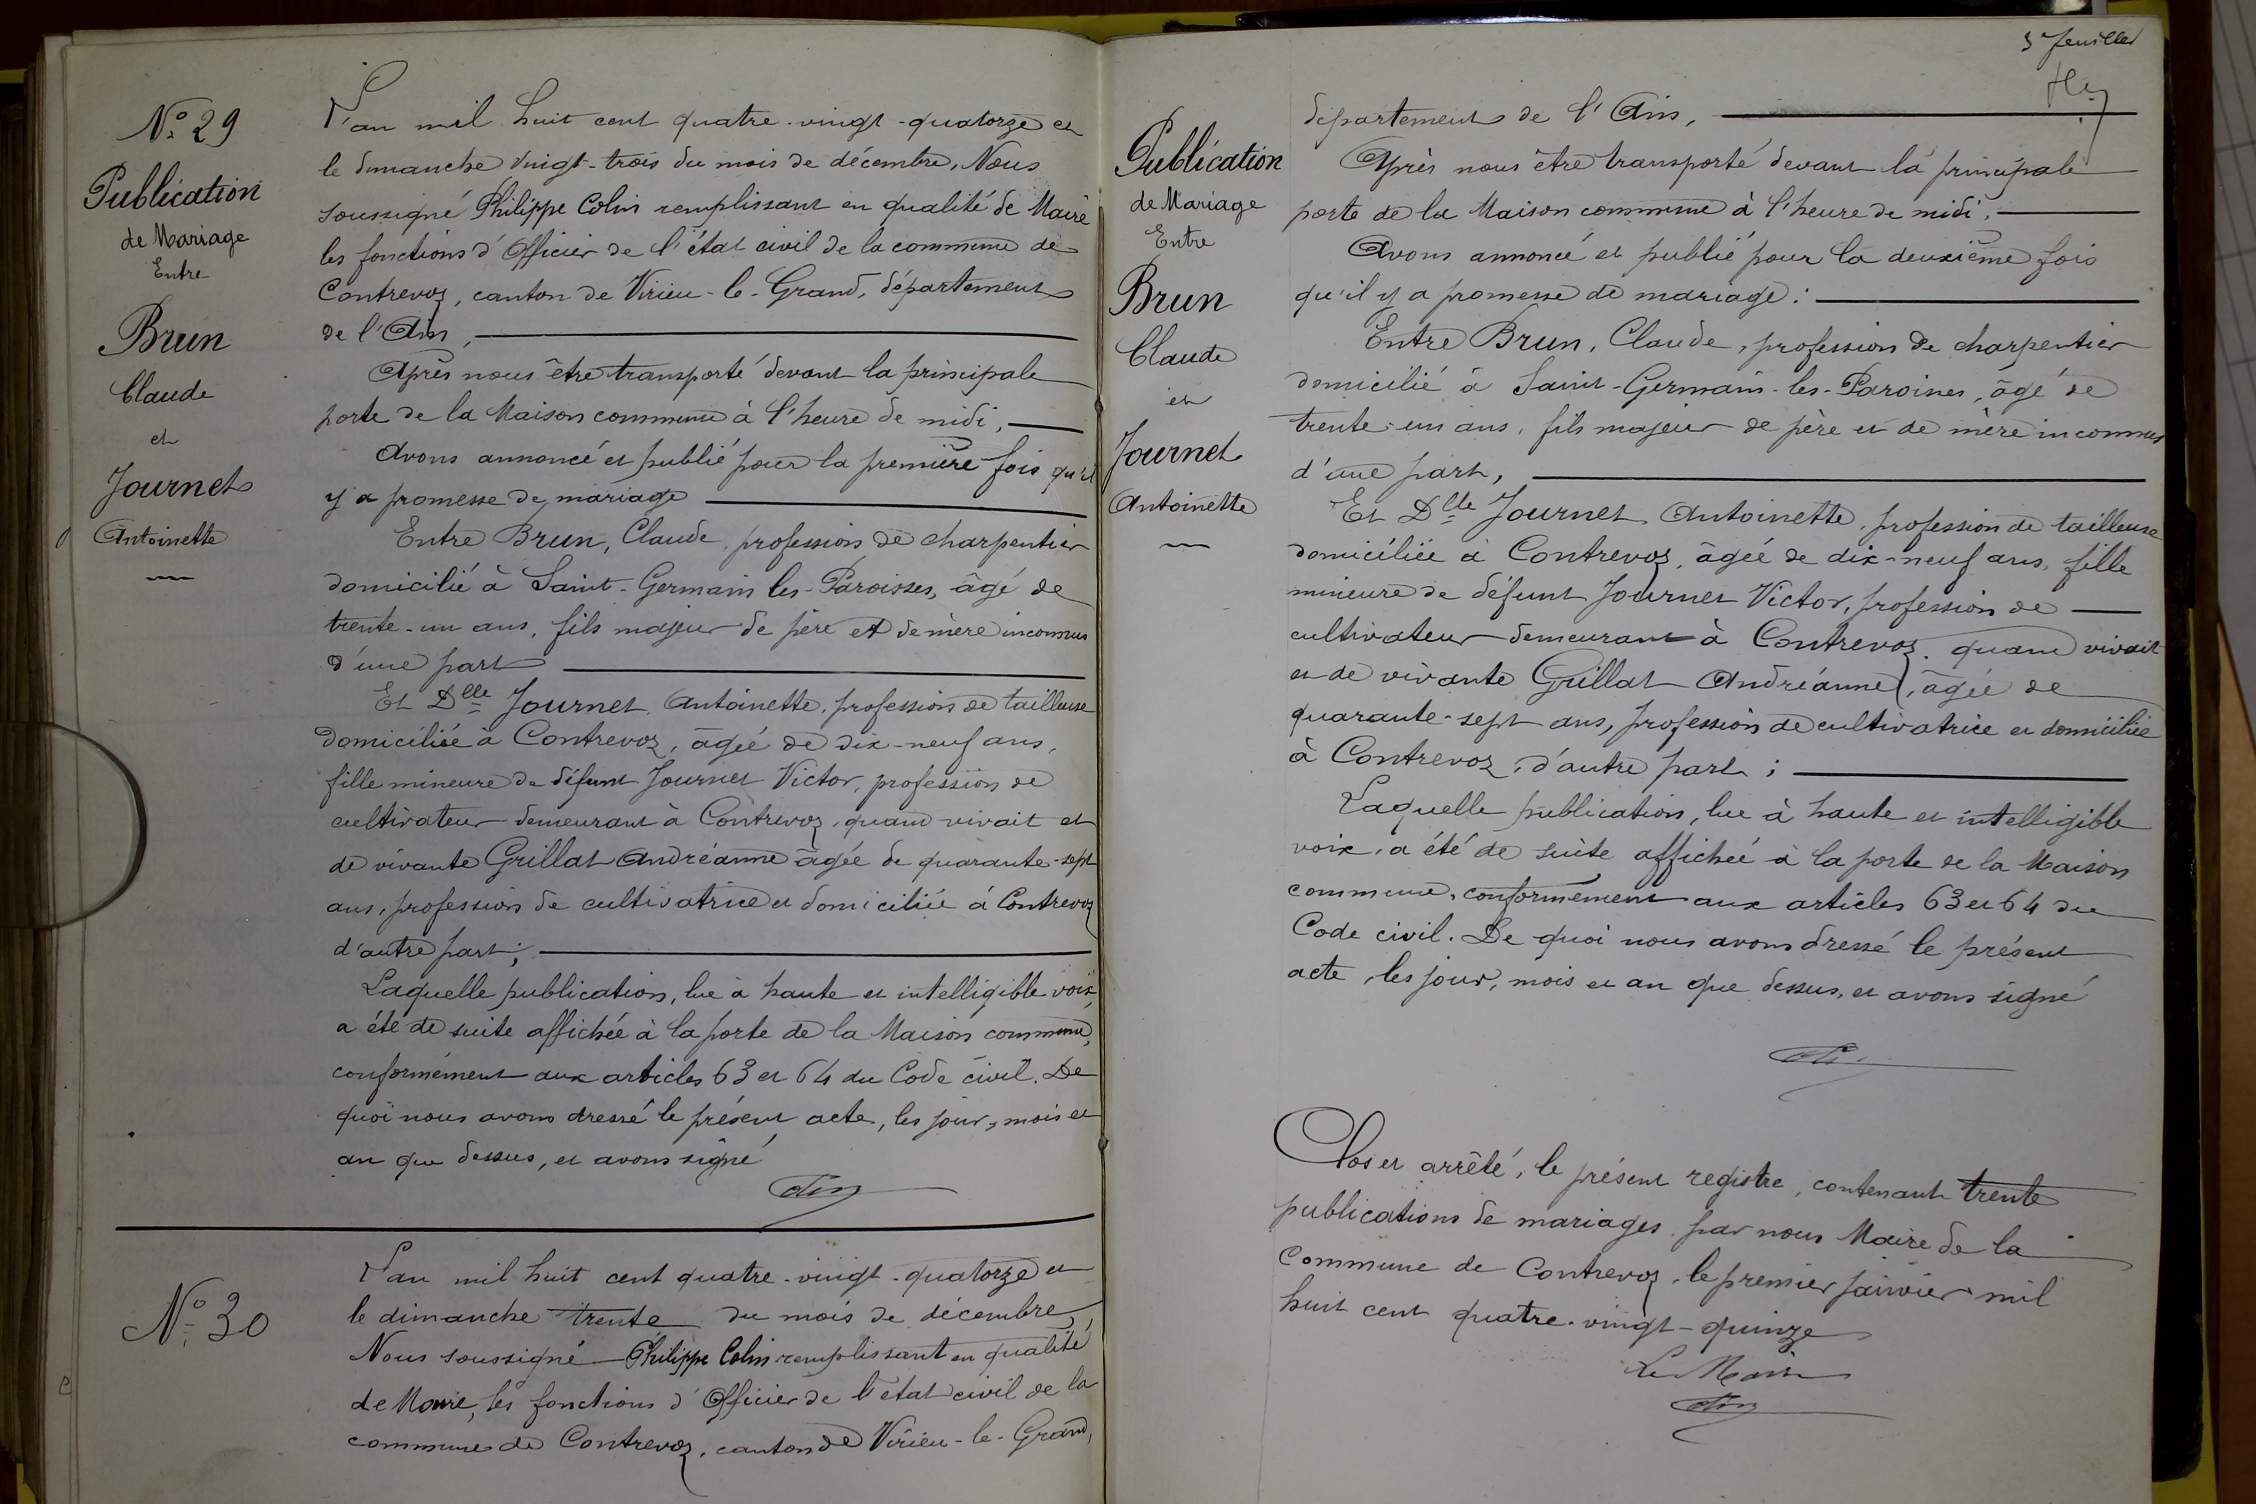 N.o 29
Publication
de Mariage
Entre
Brun
Claude
et
Journet
Antoinette
L'an mil huit cent quatre-vingt-quatorze et
le dimanche vingt-trois du mois de décembre, Nous
soussigné Philippe Colin remplissant en qualité de Maire
les fonctions d'Officier de l'état civil de la commune de
Contrevoz, canton de Virieu-le-Grand, département
de l'Ain,
Après nous être transporté devant la principale
porte de la Maison commune à l'heure de midi,
Avons annoncé et publié pour la première fois qu'il
y a promesse de mariage
Entre Brun, Claude, profession de charpentier
domicilié à Saint-Germain les-Paroisses, âgé de
trente-un ans, fils majeur de père et de mère inconnus
d'une part
Et Dlle Journet Antoinette, profession de tailleuse
domiciliée à Contrevoz, âgée de dix-neuf ans,
fille mineure de défunt Journet Victor, profession de
cultivateur demeurant à Contrevoz, quand vivait et
de vivante Grillat Andréanne âgée de quarante-sept
ans, profession de cultivatrice et domiciliée à Contrevoz
d'autre part;
Laquelle publication, lue à haute et intelligible voix,
a été de suite affichée à la porte de la Maison commune,
conformément aux articles 63 et 64 du Code civil. De
quoi nous avons dressé le présent acte, les jour, mois et
an que dessus, et avons signé
Colin
N.o 30
L'an mil huit cent quatre-vingt-quatorze et
le dimanche trente du mois de décembre,
Nous soussigné Philippe Colin remplissant en qualité
de Maire, les fonctions d'Officier de l'état civil de la
commune de Contrevoz, canton de Virieu-le-Grand,
Publication
de Mariage
Entre
Brun
Claude
et
Journet
Antoinette
département de l'Ain,
Après nous être transporté devant la principale
porte de la Maison commune à l'heure de midi,
Avons annoncé et publié pour la deuxième fois
qu'il y a promesse de mariage:
Entre Brun, Claude, profession de charpentier
domicilié à Saint-Germain-les-Paroines, âgé de
trente-un ans, fils majeur de père et de mère inconnus
d'une part,
Et Dlle Journet Antoinette, profession de tailleuse
domiciliée à Contrevoz, âgée de dix-neuf ans, fille
mineure de défunt Journet Victor, profession de
cultivateur demeurant à Contrevoz, quand vivait
et de vivante Grillat Andréanne, âgée de
quarante-sept ans, profession de cultivatrice et domiciliée
à Contrevoz, d'autre part;
Laquelle publication, lue à haute et intelligible
voix, a été de suite affichée à la porte de la Maison
commune, conformément aux articles 63 et 64 du
Code civil. De quoi nous avons dressé le présent
acte, les jour, mois et an que dessus, et avons signé
Colin
Clos et arrêté, le présent registre, contenant trente
publications de mariages par nous Maire de la
Commune de Contrevoz, le premier janvier mil
huit cent quatre-vingt-quinze
Le Maire
Colin